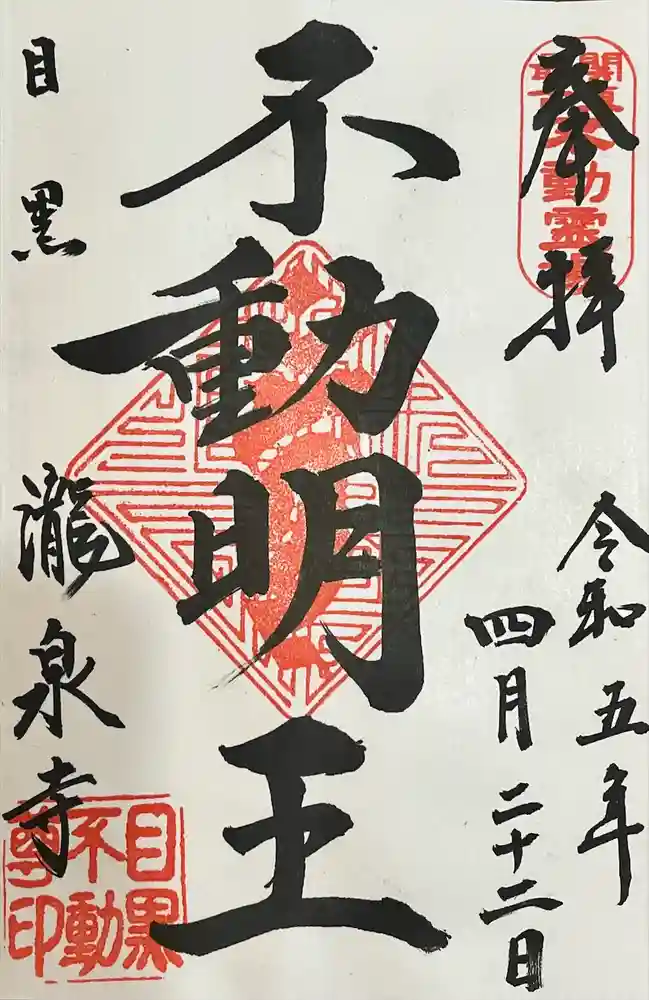 奉拝
不動霊場
令和五年
四月二十二日
不動明王
目黒
瀧泉寺
目黒
不動
尊印